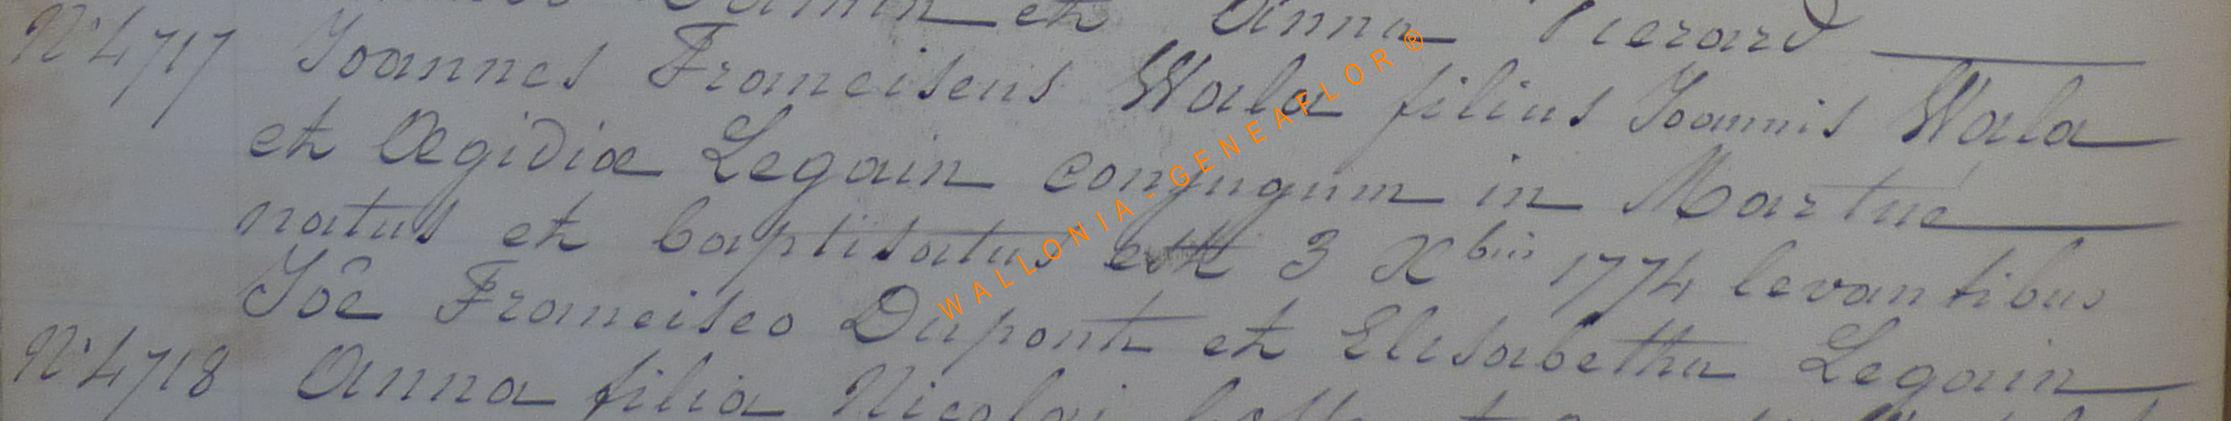 et Anna Pierard
N° 4717 Joannes Franciscus Wala filius Joannis Wala
et Ægidiæ Legain conjugum in Martué
natus et baptisatus est 3 Xbris 1774 levantibus
Joê Francisco Dupont et Elisabetha Legain
N° 4718 Anna filia Nicolai
WALLONIA-GENEAFLOR®